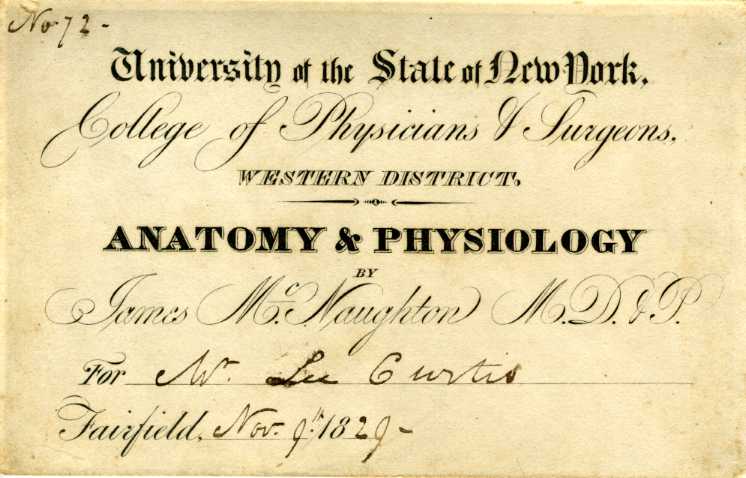 No 72-
University of the State of New York.
College of Physicians & Surgeons.
WESTERN DISTRICT.
ANATOMY & PHYSIOLOGY
BY
James Mc.Naughton M.D.&P.
For Mr. Lee Curtis
Fairfield, Nov. 9th 1829-